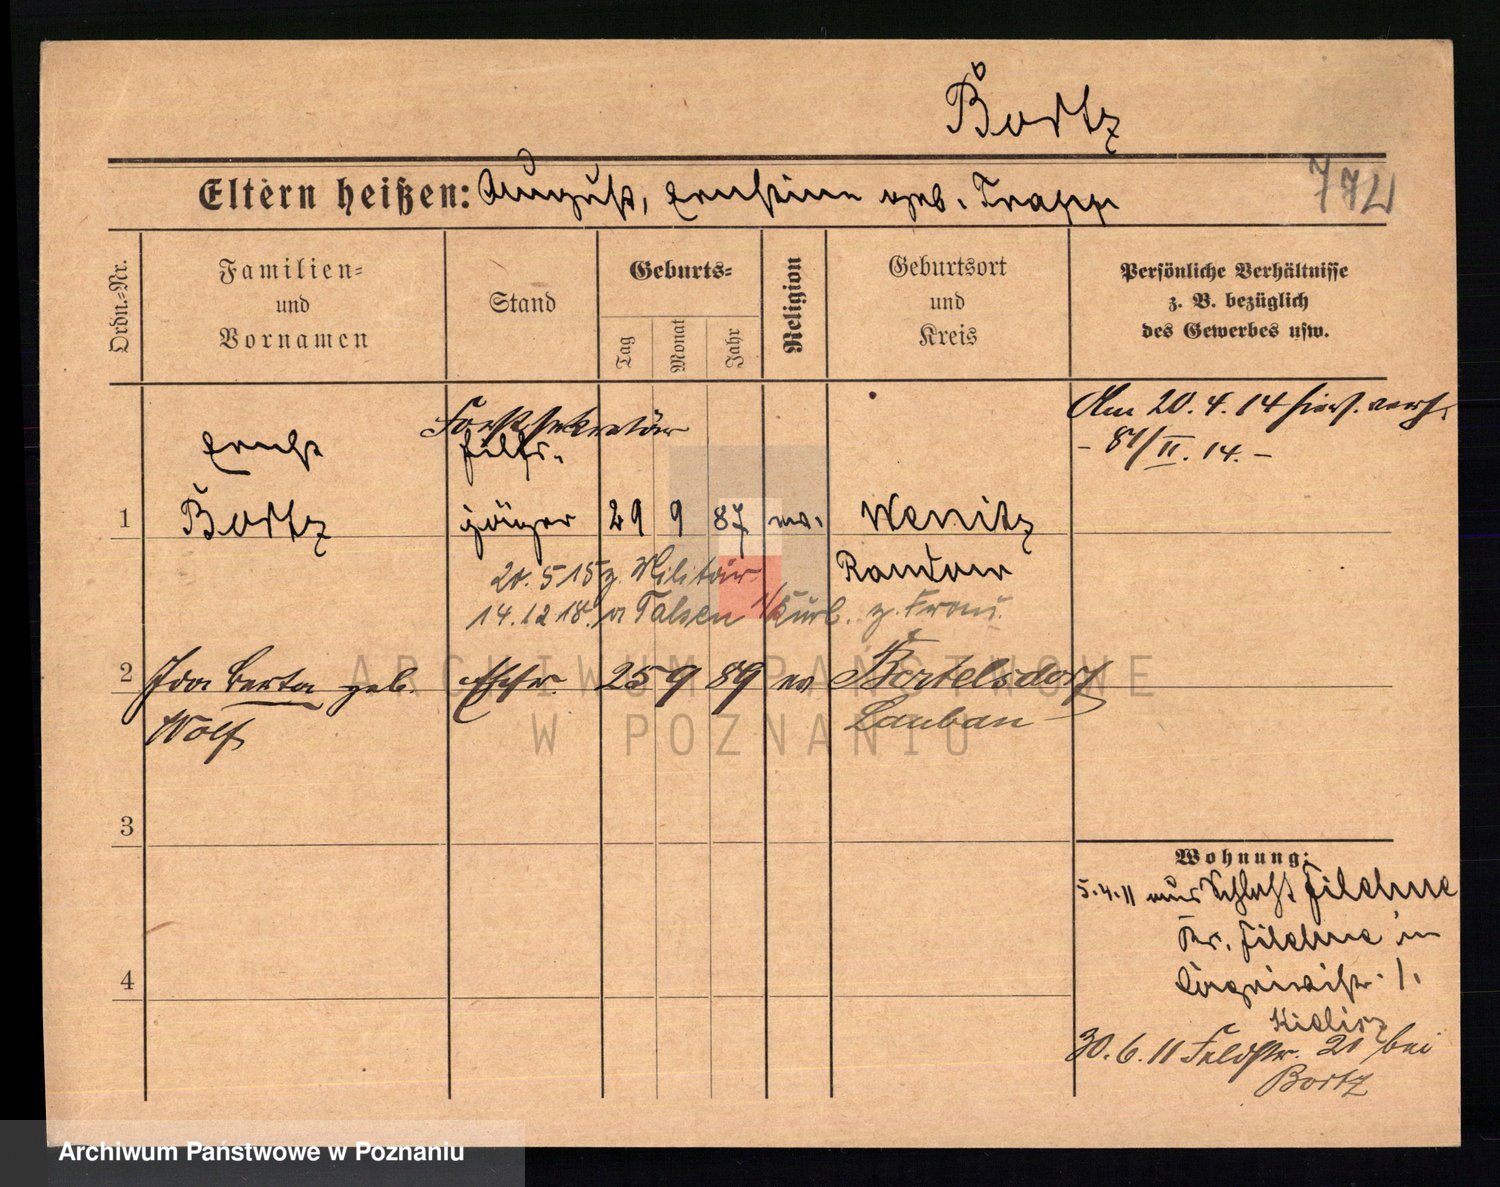 Bortz
Eltern heißen: August, Ernstine geb. Trapp
772
Ordn.-Nr.
Familien-
und
Vornamen
Stand
Geburts-
Tag
Monat
Jahr
Religion
Geburtsort
und
Kreis
Persönliche Verhältnisse
z. B. bezüglich
des Gewerbes usw.
Am 20.4.14 hiers. verh.
- 81/II. 14. -
Forstsekretär
Ernst
hilfs-
1 Bortz jäger 29 9 87 ev. Wamitz
Randow
20.5 15 z. Militär
14.12 18. a Talsen /Kurl. z. Frau.
2 Ida Berta geb. Ehefr. 25 9 89 ev Bertelsdorf
Wolf Lauban
3
Wohnung:
5.4.11 aus Schloß Filehne
Kr. Filehne in
4
30.6.11 Feldstr. 21 bei
Bortz
ARCHIWUM PAŃSTWOWE
W POZNANIU
Archiwum Państwowe w Poznaniu